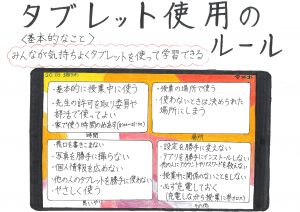 タブレット使用の
ルール
〈基本的なこと〉
みんなが気持ちよくタブレットを使って学習できる
・基本的に授業中に使う
・先生の許可を取り委員や
部活で使ってよい
・家で使う時間
時間
・授業の場所で使う
・使わないときは決められた
場所にしまう
場所
・悪口を書きこまない
・写真を勝手に撮らない
・個人情報を広めない
・他の人のタブレットを勝手に使わない
・やさしく使う
思いやり
・設定を勝手に変えない
・アプリを勝手にインストールしない
・他の人にアカウントやパスワードを教えない
・授業中に関係のないことをしない
・必ず充電しておく
その他